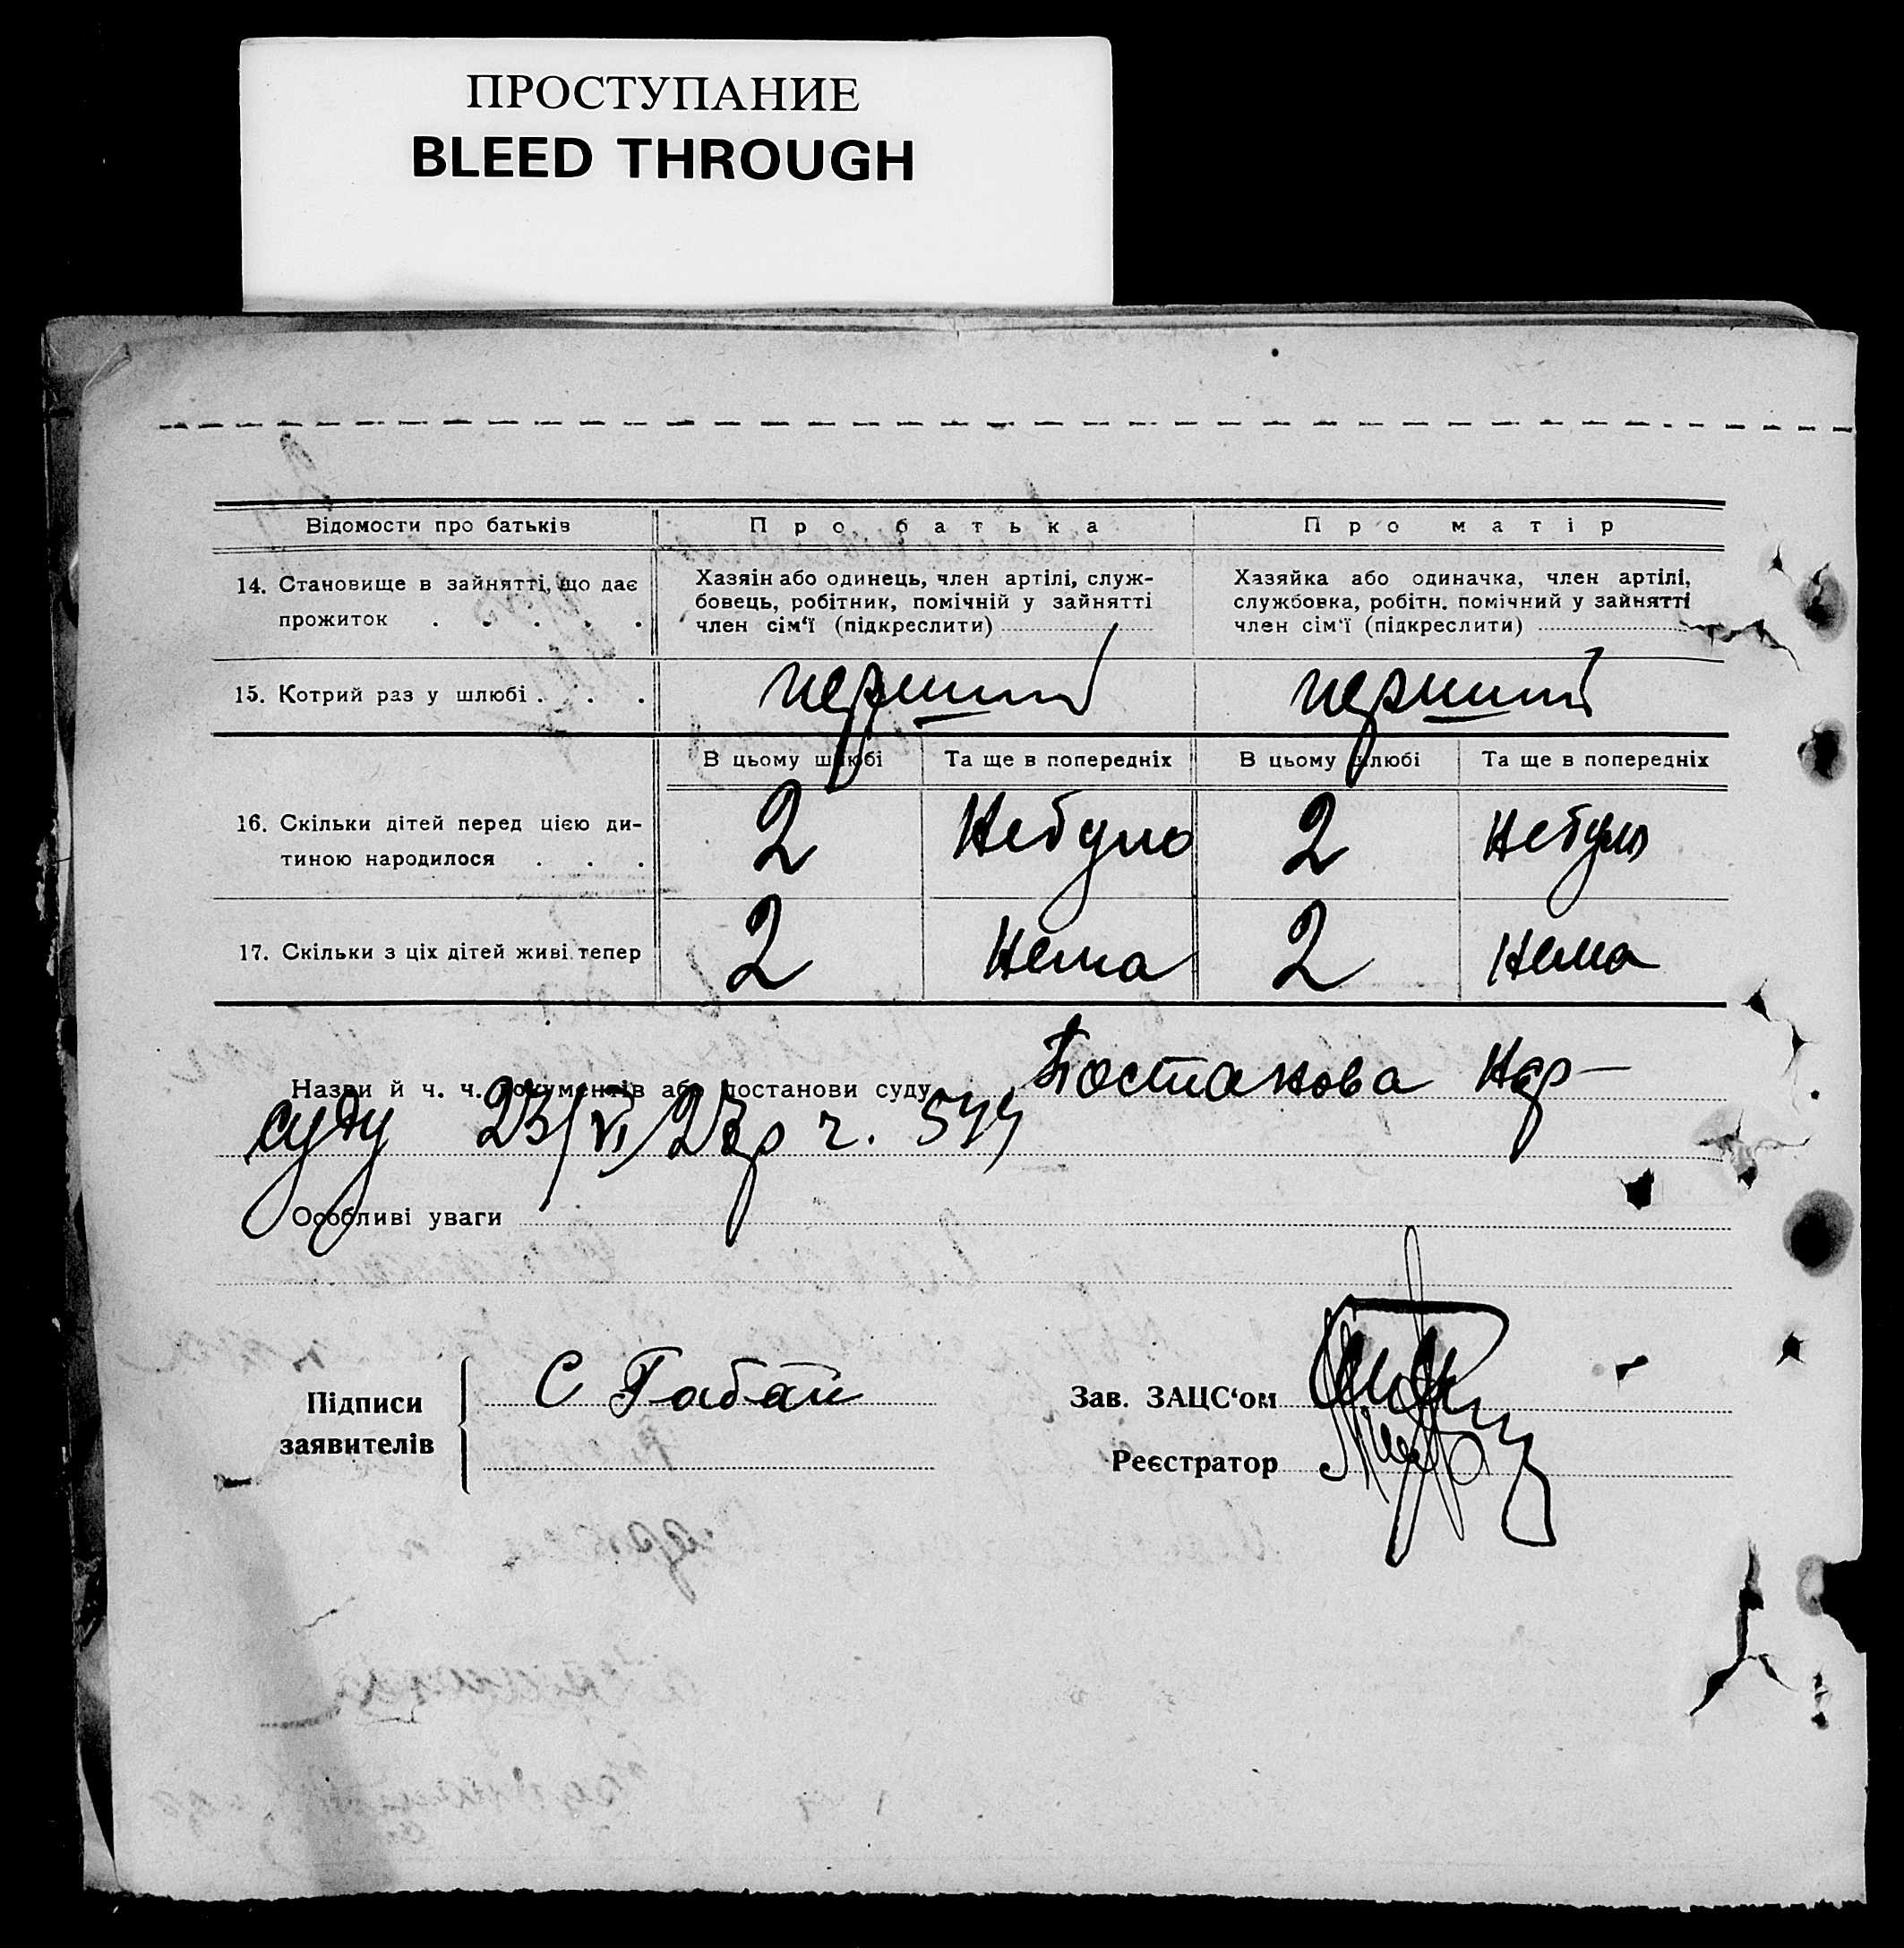 ПРОСТУПАНИЕ
BLEED THROUGH
Відомости про батьків
Про батька
Про матір
14. Становище в зайнятті, що дає
прожиток . . . . .
Хазяін або одинець, член артілі, служ-
бовець, робітник, помічній у зайнятті
член сім‘ї (підкреслити)
Хазяйка або одиначка, член артілі,
службовка, робітн. помічний у зайнятті
член сім‘ї (підкреслити)
15. Котрий раз у шлюбі . . .
перший
перший
В цьому шлюбі
Та ще в попередніх
В цьому шлюбі
Та ще в попередніх
16. Скільки дітей перед цією ди-
тиною народилося . . .
2
Небуло
2
Небуло
17. Скільки з ціх дітей живі тепер
2
Нема
2
Нема
Назви й ч. ч. документів або постанови суду Постанова Нар-
суду 23/VI 27р ч.
Особливі уваги
Підписи
заявителів
С Габай
Зав. ЗАЦС‘ом
Реєстратор